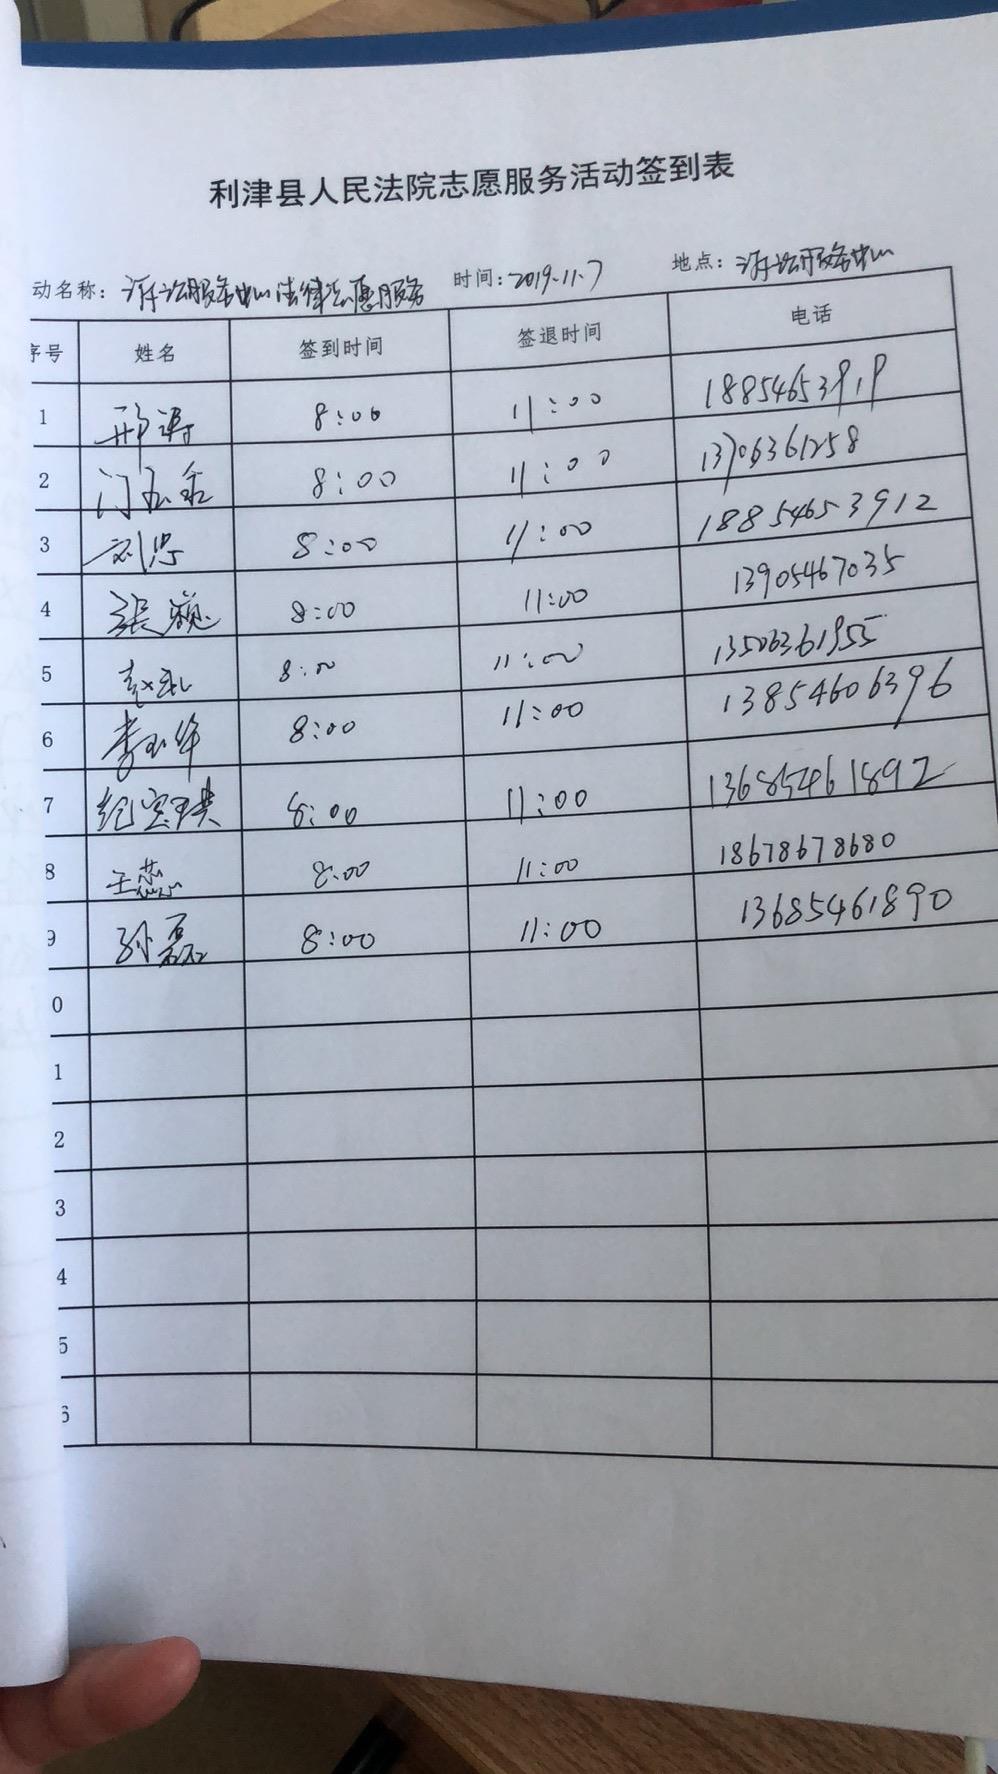 利津县人民法院志愿服务活动签到表
动名称：诉讼服务中心法律志愿服务 时间：2019.11.7 地点：诉讼服务中心
序号 姓名 签到时间 签退时间 电话
1 邢涛 8:00 11:00 18854653919
2 门 8:00 11:00 13706361258
3 刘忠 8:00 11:00 18854653912
4 张巍 8:00 11:00 13905467035
5 赵 8:00 11:00 13506361955
6 李玉华 8:00 11:00 13854606396
7 纪宝珙 8:00 11:00 13685461892
8 王蕊 8:00 11:00 18678678680
9 孙磊 8:00 11:00 13685461890
0
1
2
3
4
5
6